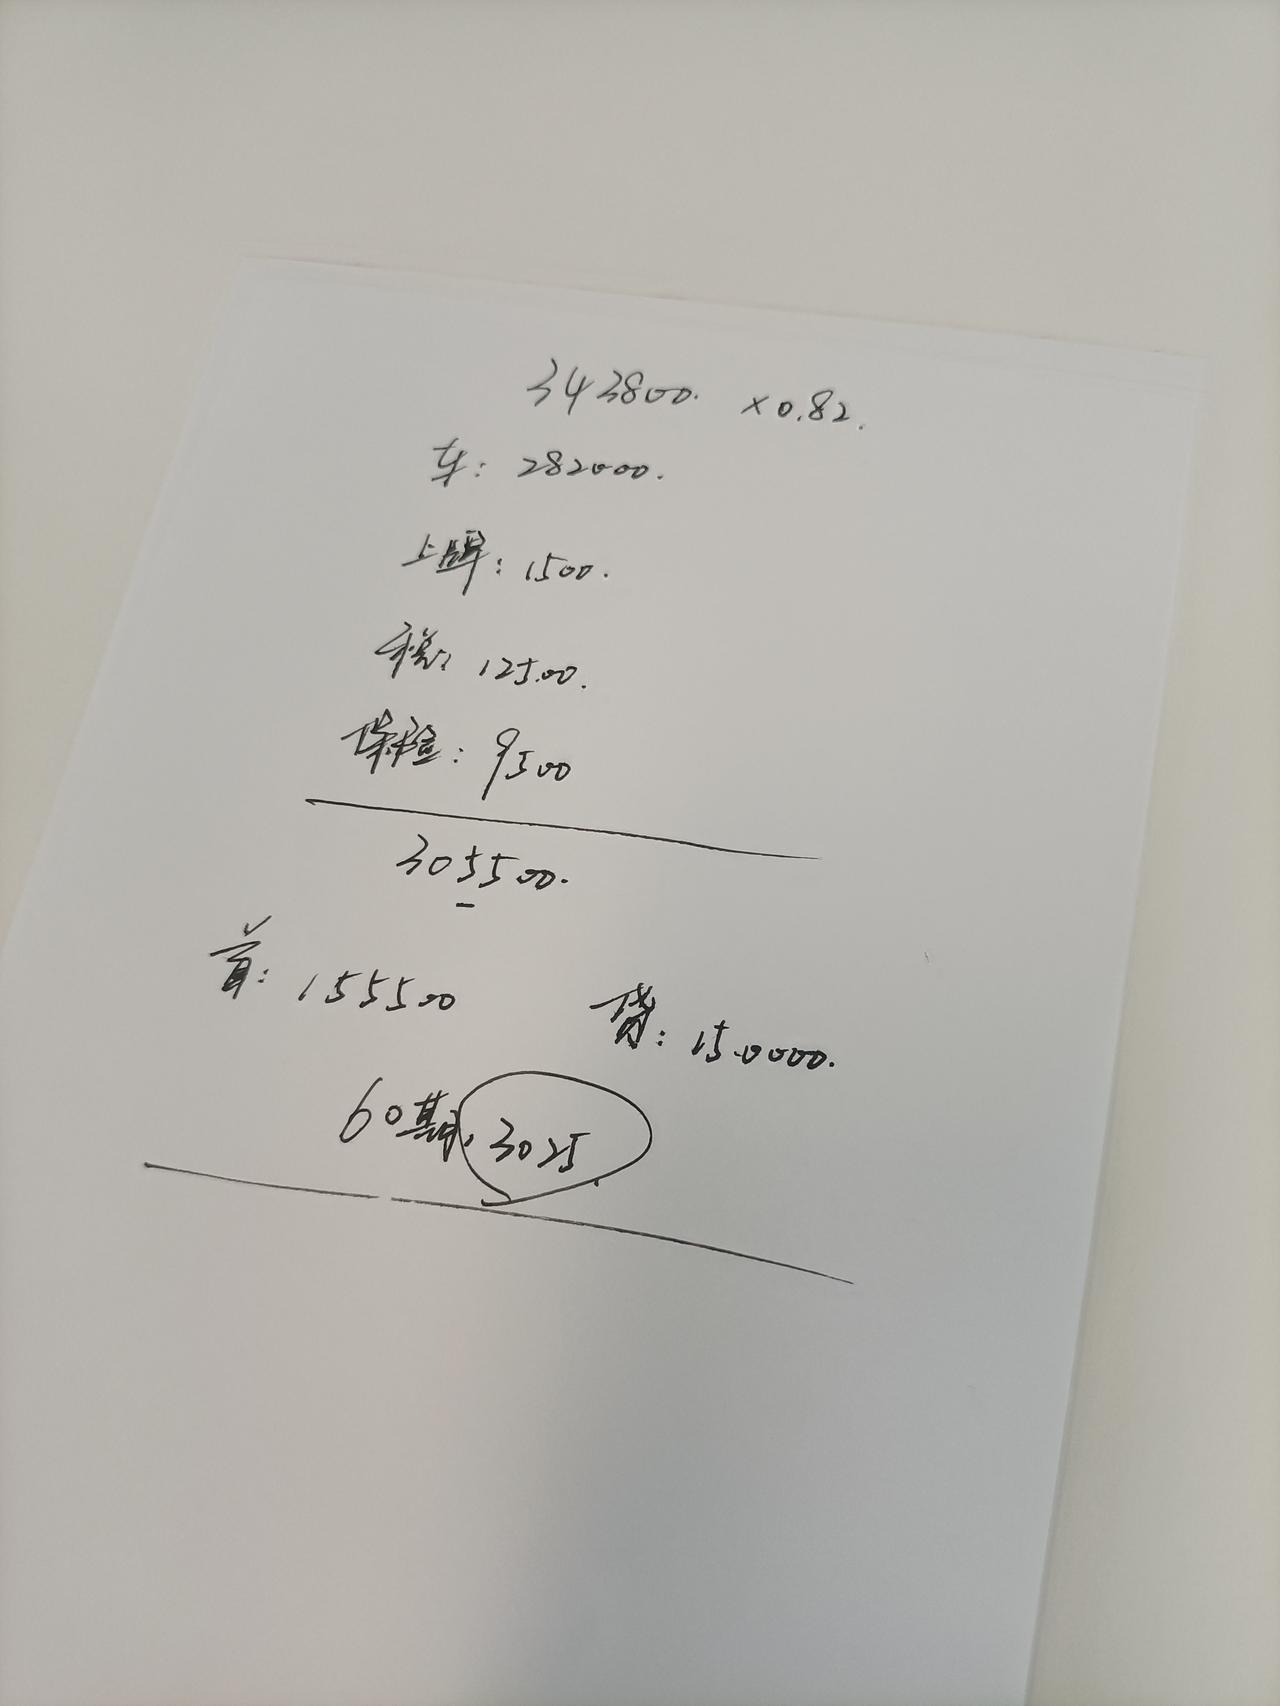 343800. ×0.82.
车: 282000.
上牌: 1500.
税: 12500.
保险: 9500
305500.
首: 155500 贷: 150000.
60期, 3025.